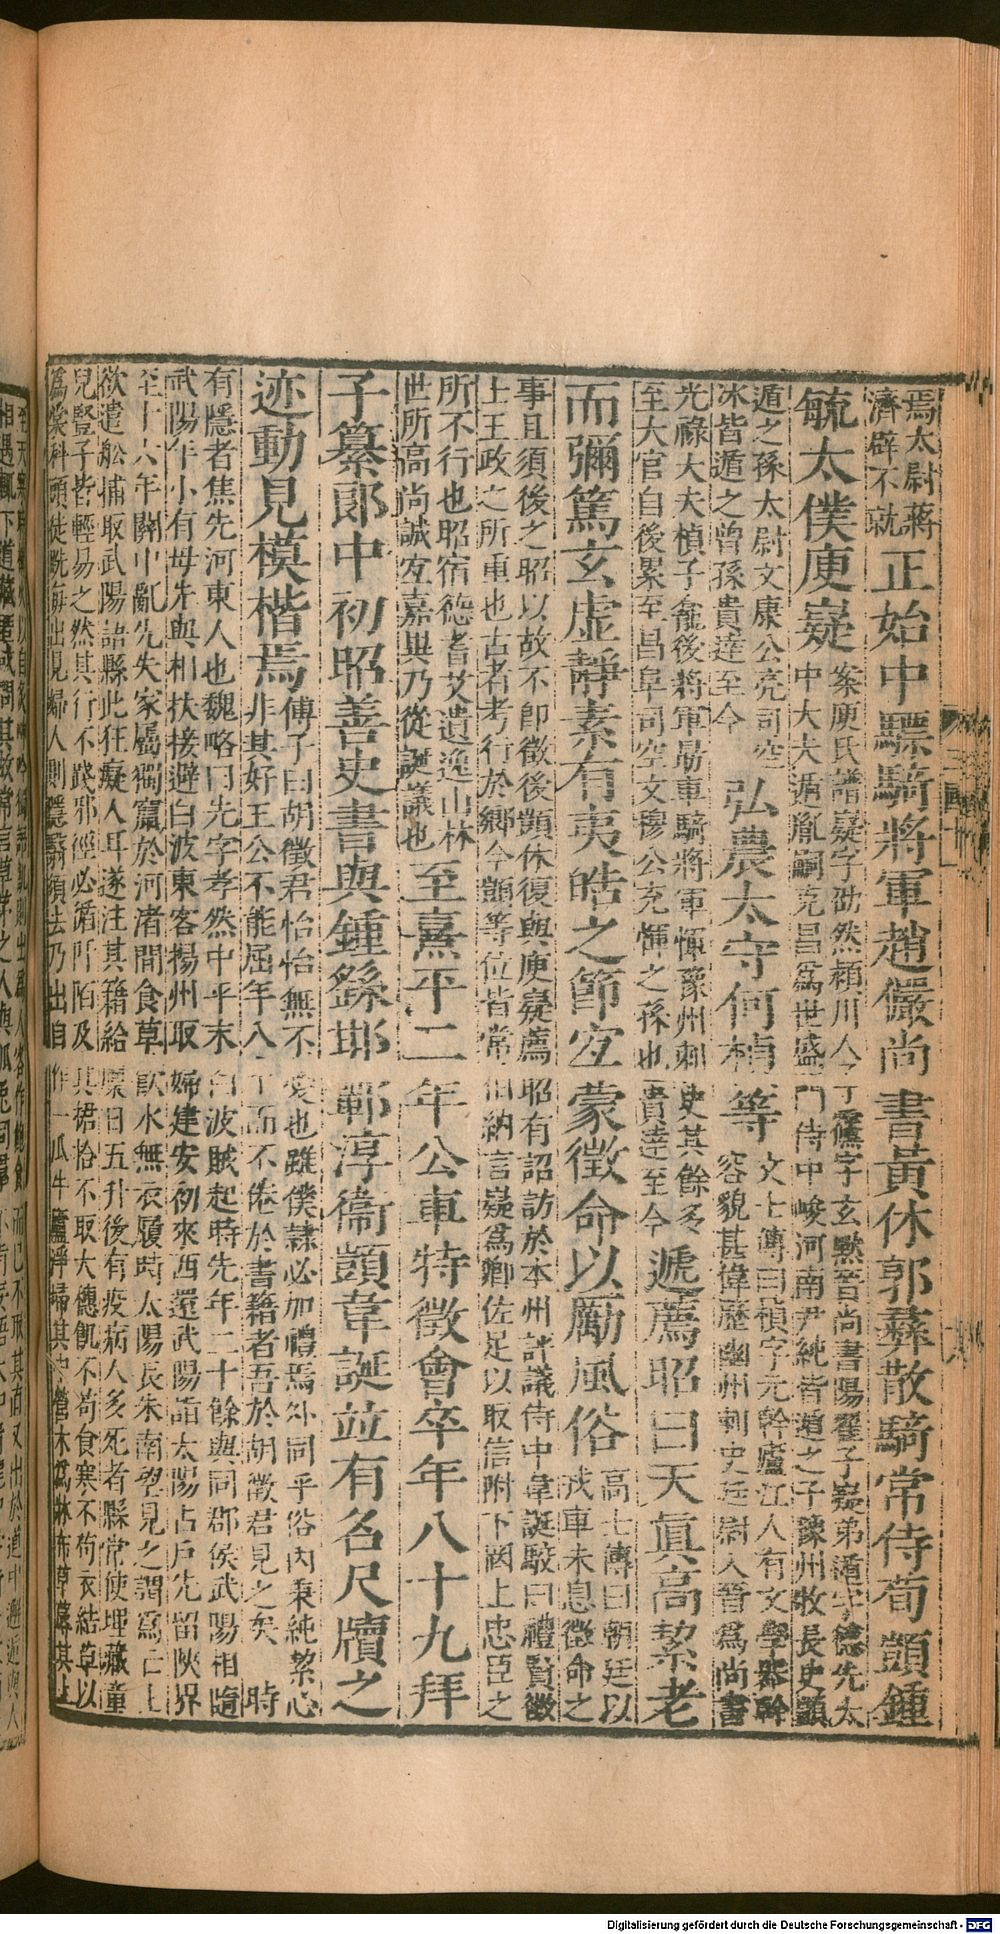 焉太尉蔣
濟辟不就
正始中驃騎將軍趙儼尚書黃休郭彝散騎常侍荀顗鍾
毓太僕庾嶷
案庾氏譜嶷字劭然潁川人子㒟字玄默晉尚書陽翟子嶷弟遁字德先太
中大夫遁胤嗣克昌爲世盛門侍中峻河南尹純皆遁之子豫州牧長史顗
遁之孫太尉文康公亮司空
冰皆遁之曾孫貴達至今
弘農太守何楨等
文士傳曰楨字元幹廬江人有文學器幹
容貌甚偉歷幽州刺史廷尉入晉爲尚書
光祿大夫楨子龕後將軍勗車騎將軍惲豫州刺史其餘多
至大官自後累至昌阜司空文穆公充惲之孫也貴達至今
遞薦昭曰天眞高絜老
而彌篤玄虛靜素有夷皓之節宜蒙徵命以勵風俗
高士傳曰朝廷以
戎車未息徵命之
事且須後之昭以故不卽徵後顗休復與庾嶷薦昭有詔訪於本州評議侍中韋誕駮曰禮賢徵
士王政之所重也古者考行於鄉今顗等位皆常伯納言嶷爲卿佐足以取信附下罔上忠臣之
所不行也昭宿德耆艾遺逸山林
世所高尚誠宜嘉與乃從誕議也
至熹平二年公車特徵會卒年八十九拜
子纂郎中初昭善史書與鍾繇邯鄲淳衞顗韋誕並有名尺牘之
迹動見模楷焉
傅子曰胡徵君怡怡無不愛也雖僕隸必加禮焉外同乎俗內秉純絜心
非其好王公不能屈年八十而不倦於書籍者吾於胡徵君見之矣 時
有隱者焦先河東人也魏略曰先字孝然中平末白波賊起時先年二十餘與同郡侯武陽相隨
武陽年小有母先與相扶接避白波東客揚州取婦建安初來西還武陽詣太陽占戶先留陝界
至十六年關中亂先失家屬獨竄於河渚間食草飲水無衣履時太陽長朱南望見之謂爲亡士
欲遣船捕取武陽語縣此狂癡人耳遂注其籍給廩日五升後有疫病人多死者縣常使埋藏童
兒豎子皆輕易之然其行不踐邪徑必循阡陌及其捃拾不取大穗飢不苟食寒不苟衣結草以
爲裳科頭徒跣每出見婦人則隱翳須去乃出自作一瓜牛廬淨掃其中營木爲牀布草蓐其上
Digitalisierung gefördert durch die Deutsche Forschungsgemeinschaft - DFG